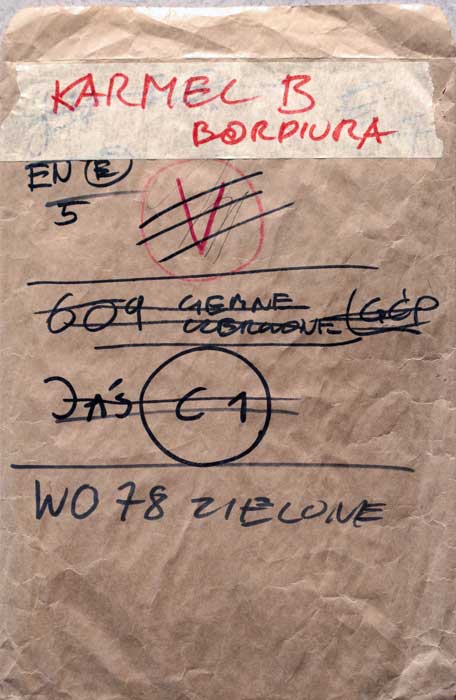 KARMEL B
BORDIURA
EN E
5
V
609 CIEMNE
CZERWONE (GĘP
JAŚ C1
WO 78 ZIELONE